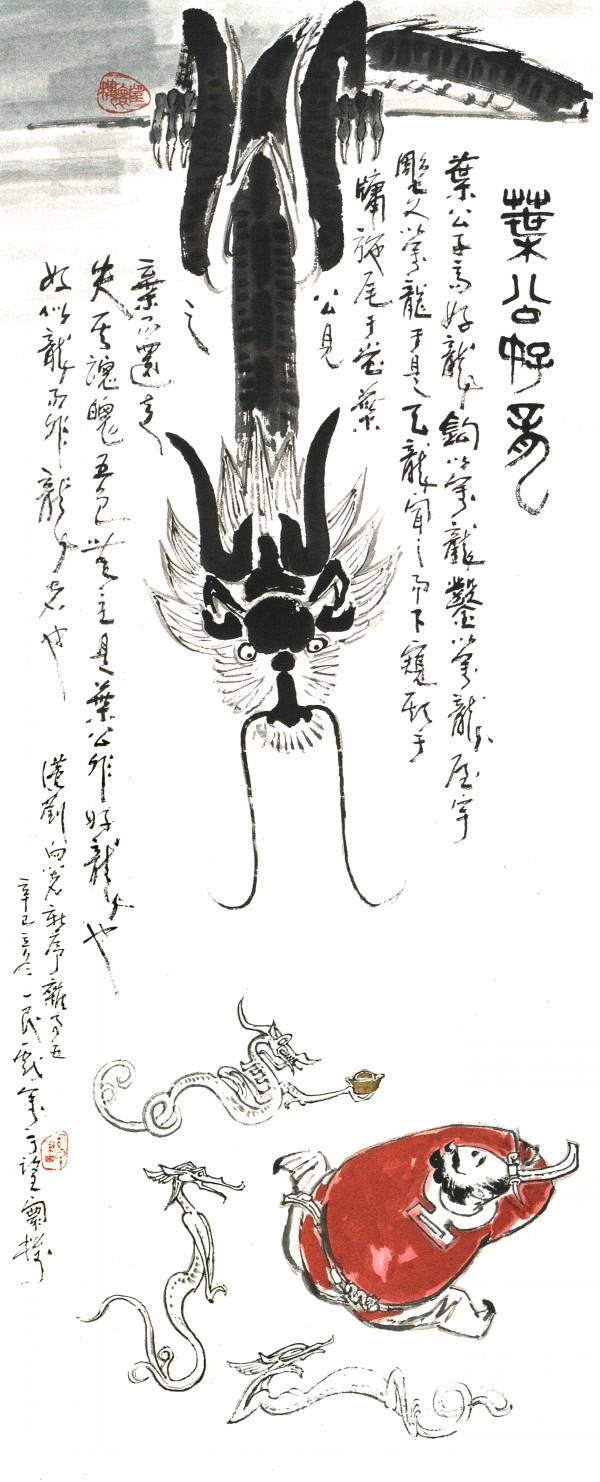 葉公好龍
葉公子高好龍鉤以寫龍鑿以寫龍屋宇
雕文以寫龍于是天龍聞之而下窺頭于
牖施尾于堂葉
公見
之
棄而還走
失其魂魄五色無主是葉公非好龍也
好似龍而非龍者也
漢劉向著新序雜事五
辛巳冬一民戲寫于望